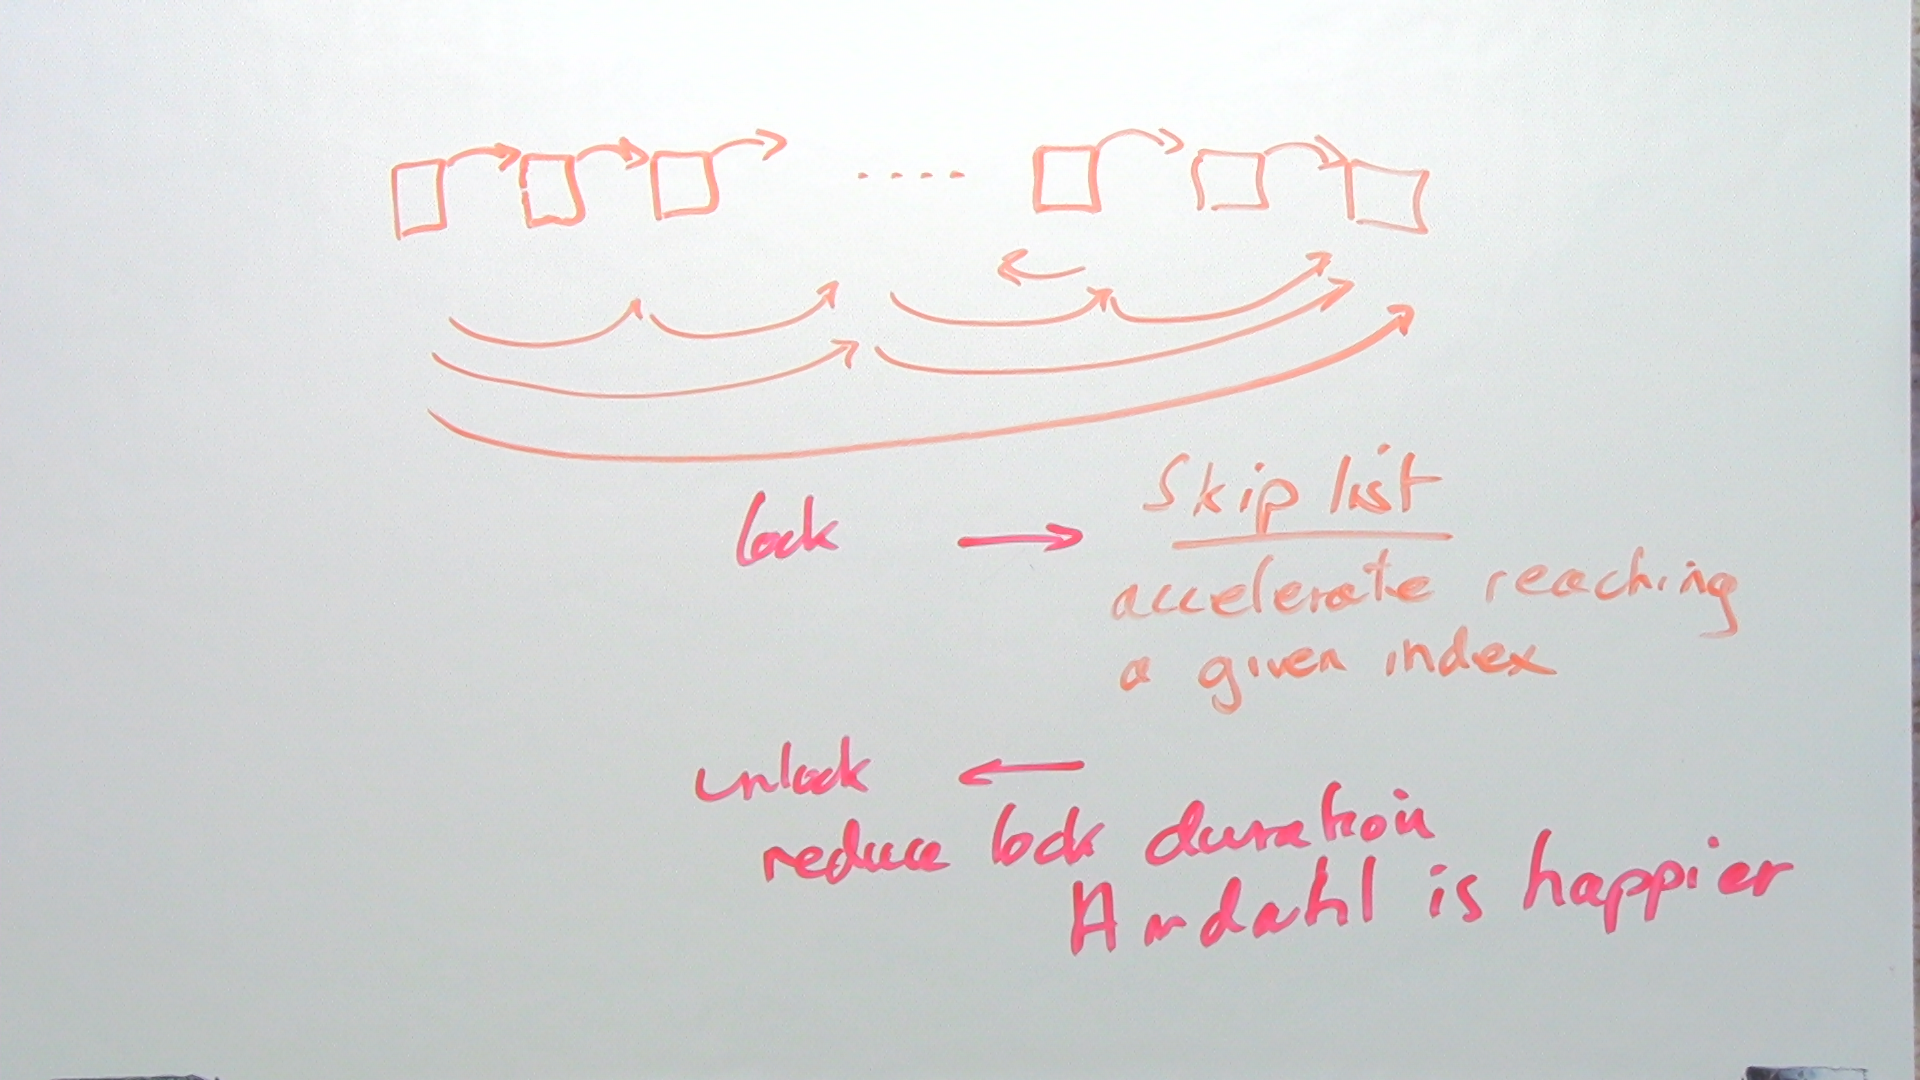 ....
Skip list
lock →
accelerate reaching
a given index
unlock ←
reduce lock duration
Amdahl is happier